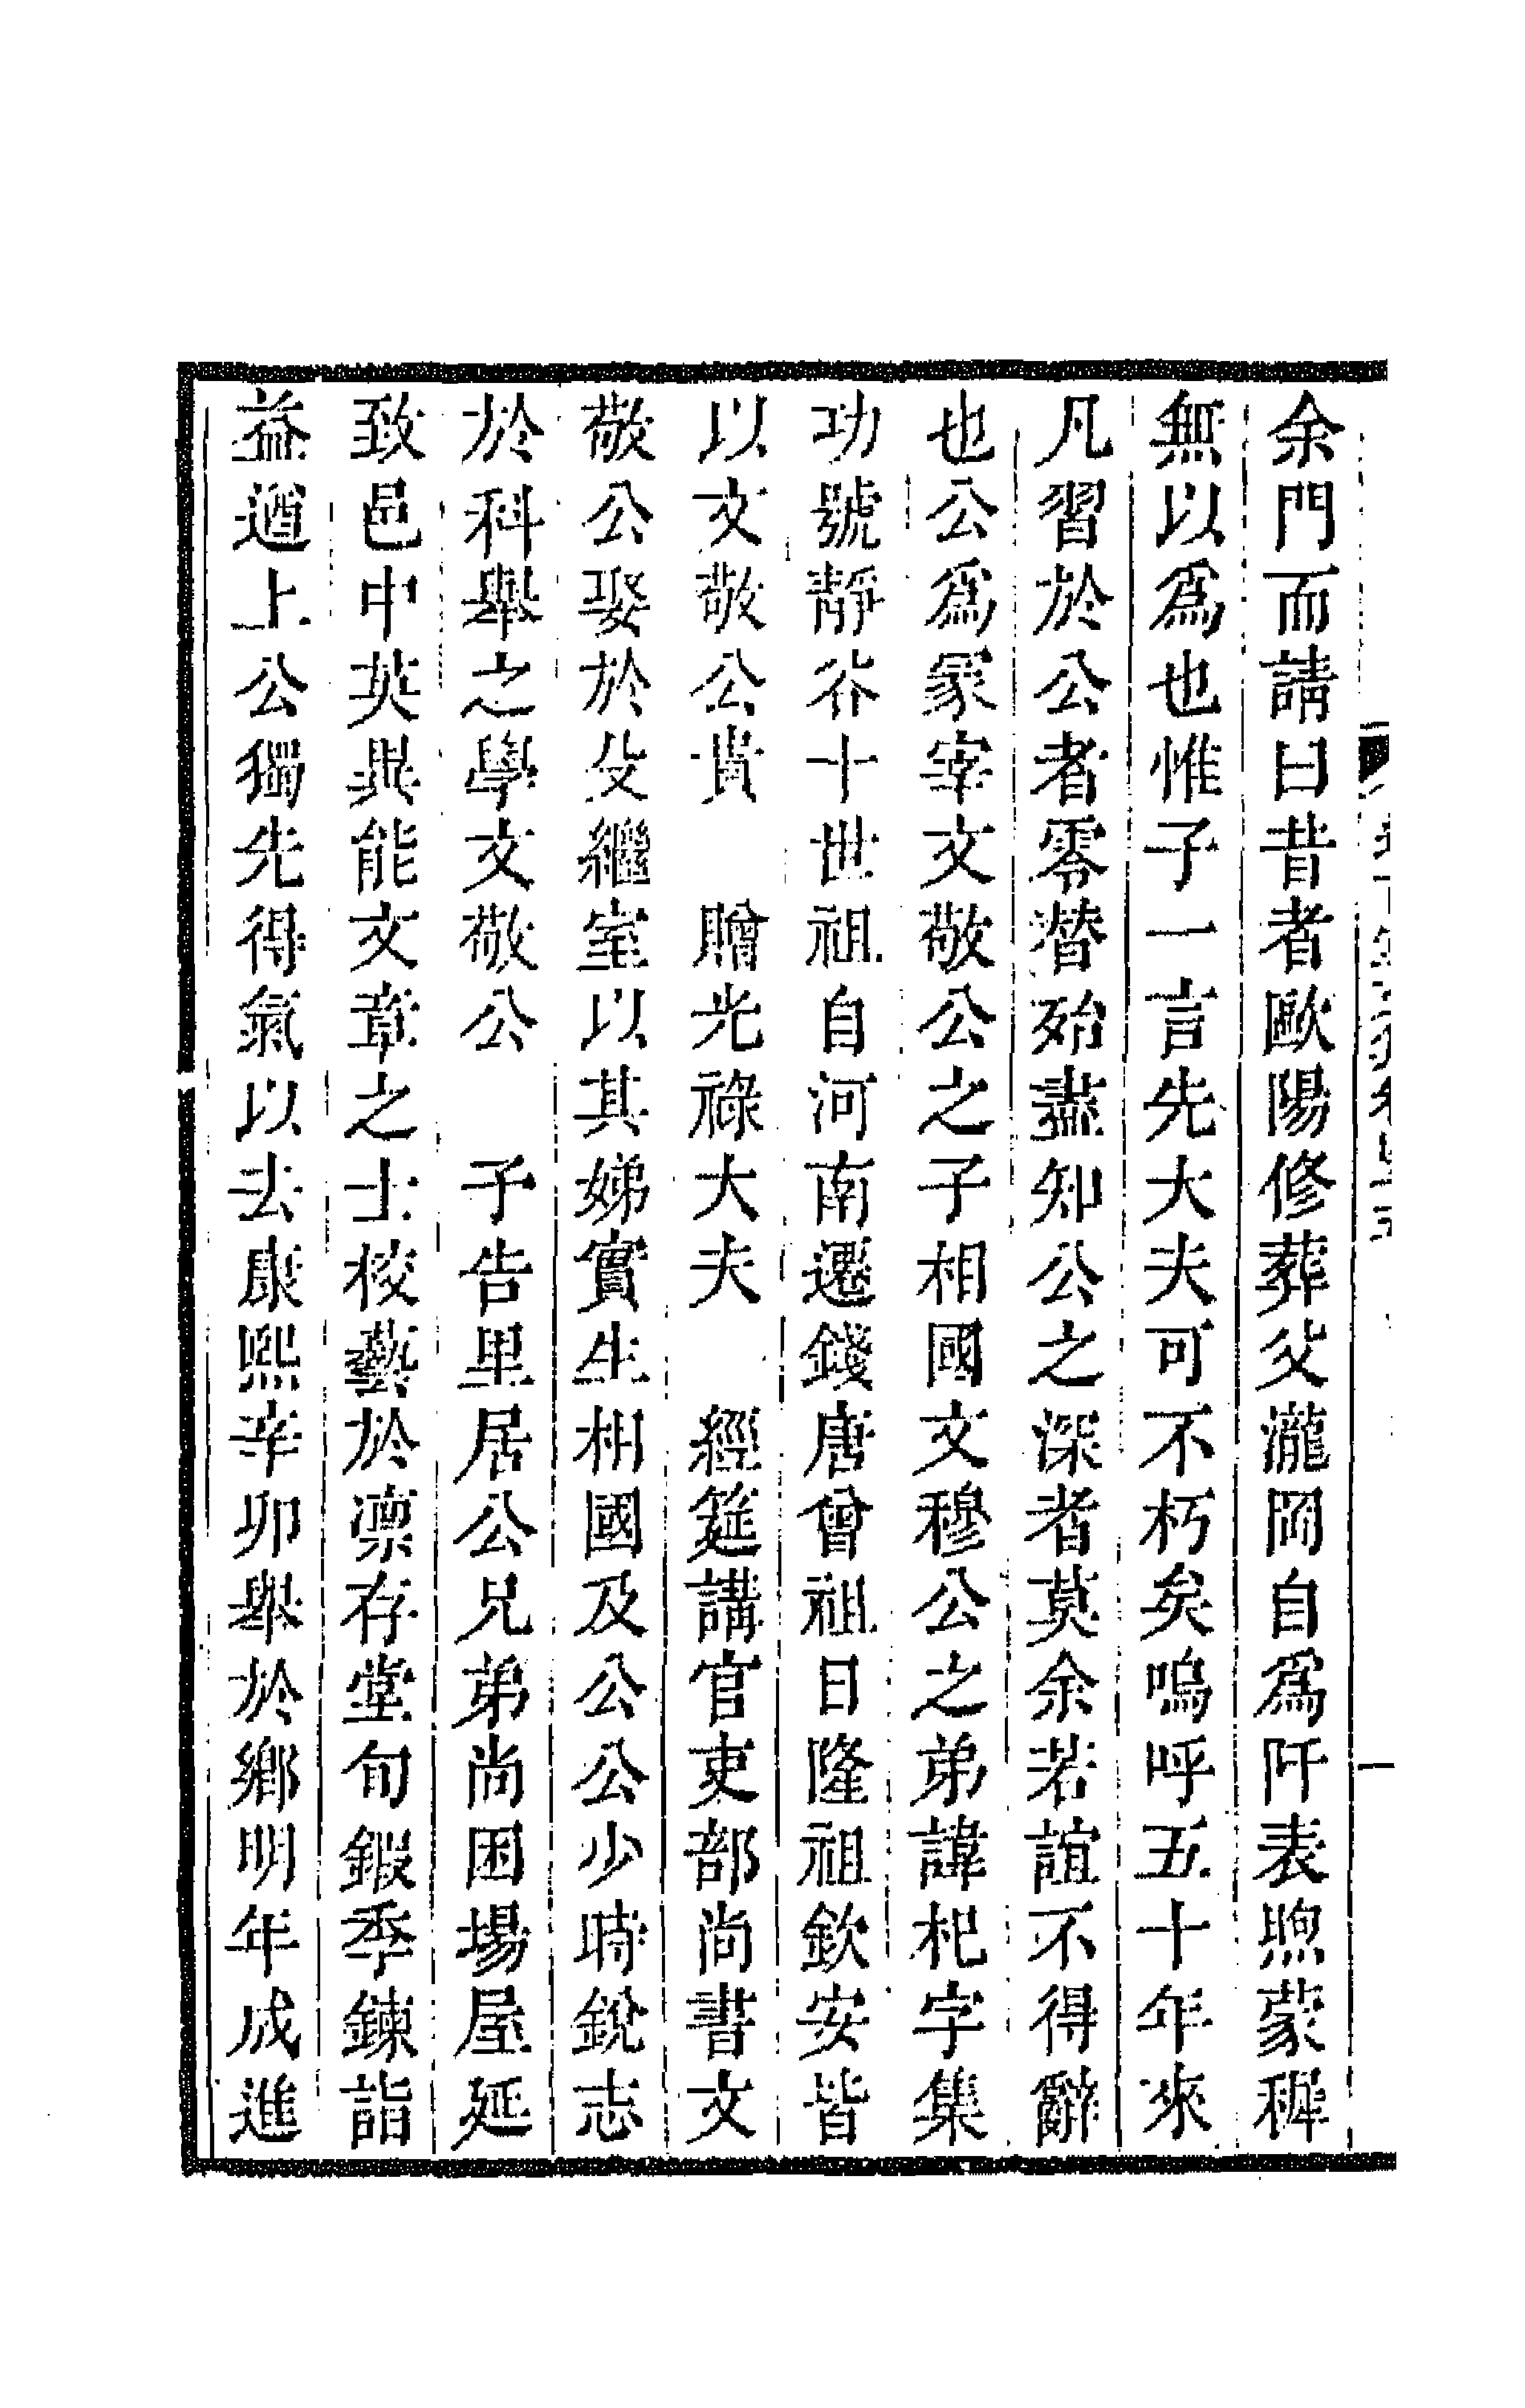 余門而請曰昔者歐陽修葬父瀧岡自爲阡表煦蒙穉
無以爲也惟子一言先大夫可不朽矣嗚呼五十年來
凡習於公者零替殆盡知公之深者莫余若誼不得辭
也公爲冡宰文敬公之子相國文穆公之弟諱杞字集
功號靜谷十世祖自河南遷錢唐曾祖日隆祖欽安皆
以文敬公貴　贈光祿大夫　經筵講官吏部尚書文
敬公娶於殳繼室以其娣實生相國及公公少時銳志
於科舉之學文敬公　予告里居公兄弟尚困場屋延
致邑中英異能文章之士校藝於凛存堂旬鍛季鍊詣
益遒上公獨先得氣以去康熙辛卯舉於鄉明年成進